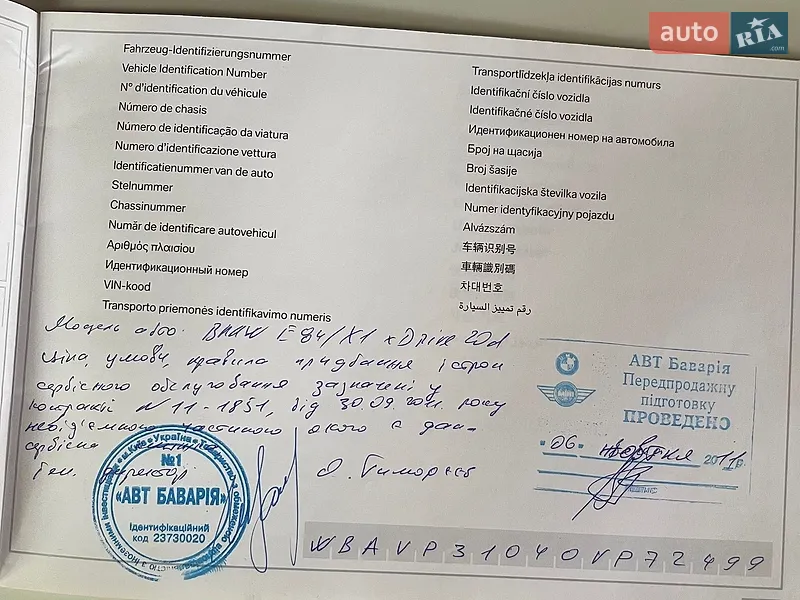 auto RIA.com
Fahrzeug-Identifizierungsnummer
Vehicle Identification Number
N° d'identification du véhicule
Número de chasis
Número de identificação da viatura
Numero d'identificazione vettura
Identificatienummer van de auto
Stelnummer
Chassinummer
Număr de identificare autovehicul
Αριθμός πλαισίου
Идентификационный номер
VIN-kood
Transporto priemonės identifikavimo numeris
Transportlīdzekļa identifikācijas numurs
Identifikační číslo vozidla
Identifikačné číslo vozidla
Идентификационен номер на автомобила
Број на щасија
Broj šasije
Identifikacijska številka vozila
Numer identyfikacyjny pojazdu
Alvázszám
车辆识别号
車輛識別碼
차대번호
رقم تمييز السيارة
Модель авто. BMW E84/X1 xDrive 20d
Ціна, умови, правила придбання і строк
сервісного обслуговування зазначені у
контракті N 11-1851, від 30.09.2011 року
невід'ємною частиною якого є дан-
сервісна
Ген. директор О. Тиморєєв
№1
"АВТ БАВАРІЯ"
Ідентифікаційний
код 23730020
MINI
АВТ Баварія
Передпродажну
підготовку
ПРОВЕДЕНО
"06" жовтня 2011р.
WBAVP31040VP72499